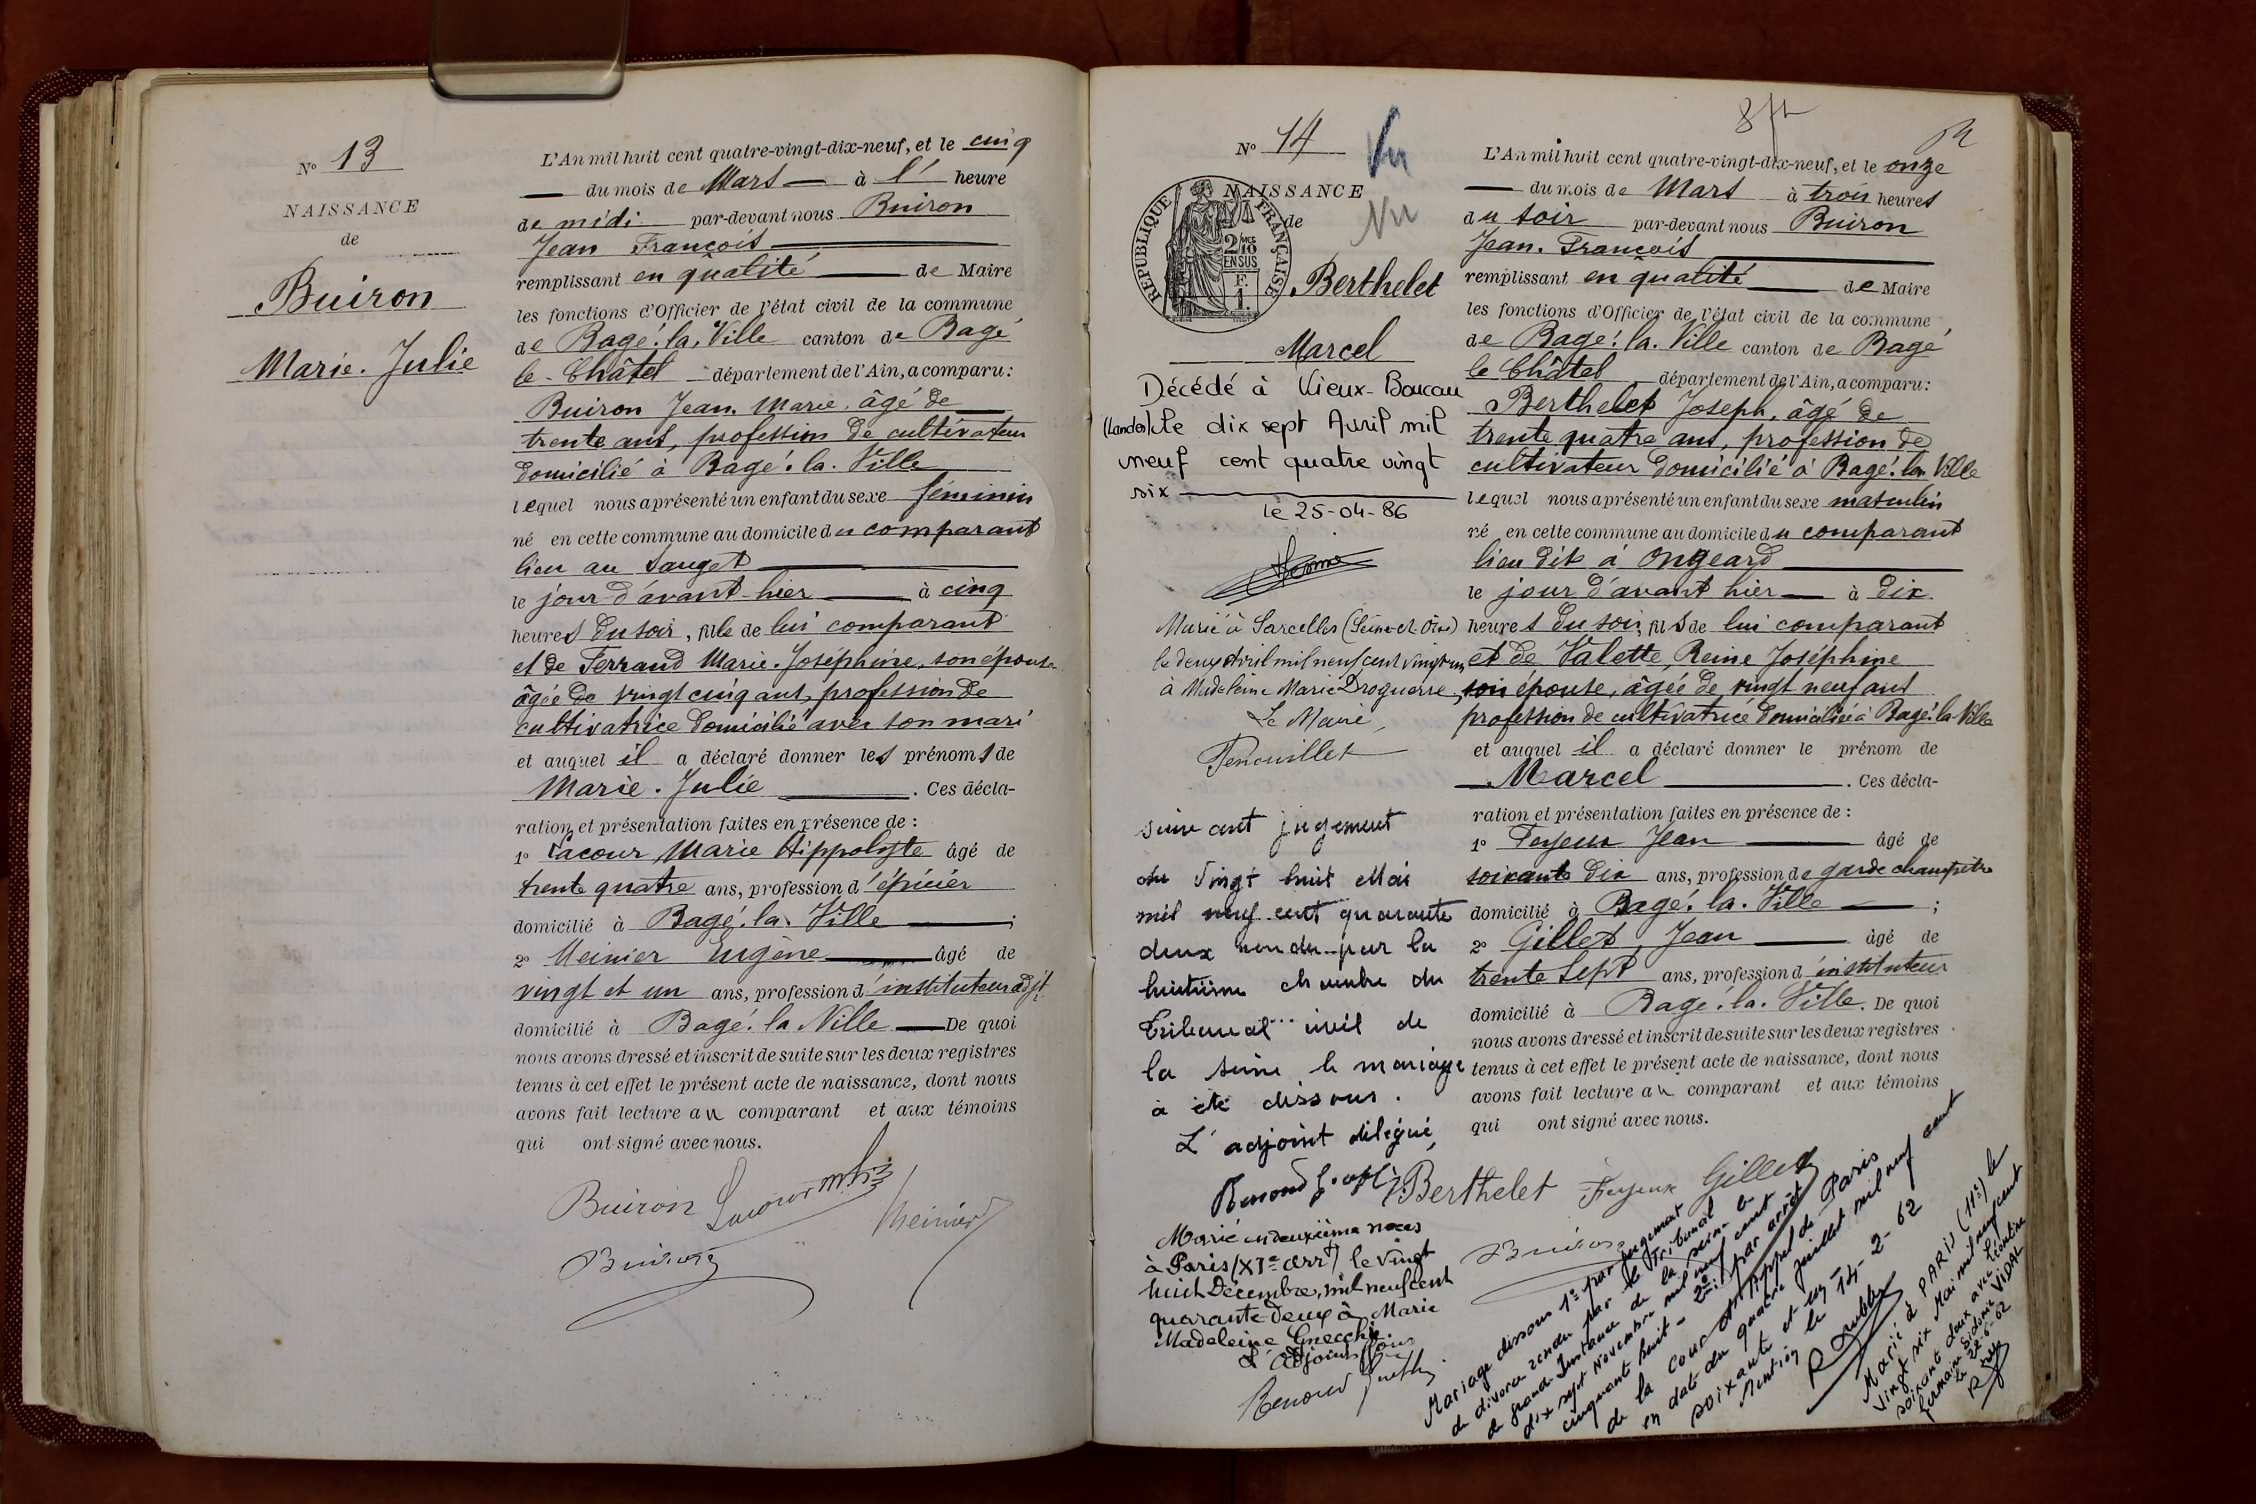 N° 13
NAISSANCE
de
Buiron
Marie. Julie
L'An mil huit cent quatre-vingt-dix-neuf, et le cinq
du mois de Mars à l' heure
de midi par-devant nous Buiron
Jean François
remplissant en qualité de Maire
les fonctions d'Officier de l'état civil de la commune
de Bagé. la. Ville canton de Bagé
le Châtel département de l'Ain, a comparu :
Buiron Jean. Marie. âgé de
trente ans, profession de cultivateur
domicilié à Bagé. la. Ville
lequel nous a présenté un enfant du sexe féminin
né en cette commune au domicile du comparant
lieu au Sauget
le jour d'avant-hier à cinq
heures du soir, fille de lui comparant
et de Ferrand Marie. Joséphine, son épouse
âgée de vingt cinq ans, profession de
cultivatrice domicilié avec son mari
et auquel il a déclaré donner les prénoms de
Marie. Julie . Ces décla-
ration et présentation faites en présence de :
1° Lacour Marie Hippolyte âgé de
trente quatre ans, profession d'épicier
domicilié à Bagé. la. Ville ;
2° Meinier Eugène âgé de
vingt et un ans, profession d'instituteur adjt
domicilié à Bagé. la Ville De quoi
nous avons dressé et inscrit de suite sur les deux registres
tenus à cet effet le présent acte de naissance, dont nous
avons fait lecture au comparant et aux témoins
qui ont signé avec nous.
Buiron Lacour Meinier
Buiron
N° 14
Vu
NAISSANCE
de
Vu
RÉPUBLIQUE FRANÇAISE
2/10
EN SUS
F.
1.
Berthelet
Marcel
Décédé à Vieux-Boucau
(Landes) le dix sept Avril mil
neuf cent quatre vingt
six
le 25-04-86
Marié à Sarcelles (Seine et Oise)
le deux Avril mil neuf cent vingt un
à Madeleine Marie Droguerre
Le Maire,
Suivant jugement
du Vingt huit Mai
mil neuf cent quarante
deux rendu par la
huitième chambre du
Tribunal civil de
la Seine le mariage
a été dissous.
L'adjoint délégué,
Marié en deuxième noces
à Paris (XIe arrt) le vingt
huit Décembre, mil neuf cent
quarante deux à Marie
Madeleine Gnecchi
L'Adjoint
L'An mil huit cent quatre-vingt-dix-neuf, et le onze
du mois de Mars à trois heures
du soir par-devant nous Buiron
Jean. François
remplissant en qualité de Maire
les fonctions d'Officier de l'état civil de la commune
de Bagé. la. Ville canton de Bagé
le Châtel département de l'Ain, a comparu :
Berthelet Joseph, âgé de
trente quatre ans, profession de
cultivateur domicilié à Bagé. la Ville
lequel nous a présenté un enfant du sexe masculin
né en cette commune au domicile du comparant
lieu dit à Ongeard
le jour d'avant hier à dix
heures du soir, fils de lui comparant
et de Valette, Reine Joséphine
son épouse, âgée de vingt neuf ans
profession de cultivatrice domiciliée à Bagé. la Ville
et auquel il a déclaré donner le prénom de
Marcel . Ces décla-
ration et présentation faites en présence de :
1° Feyeux Jean âgé de
soixante dix ans, profession de garde champêtre
domicilié à Bagé. la. Ville ;
2° Gillet, Jean âgé de
trente sept ans, profession d'instituteur
domicilié à Bagé. la. Ville. De quoi
nous avons dressé et inscrit de suite sur les deux registres
tenus à cet effet le présent acte de naissance, dont nous
avons fait lecture au comparant et aux témoins
qui ont signé avec nous.
Berthelet Feyeux Gillet
Buiron
Mariage dissous 1° par jugement
de divorce rendu par le Tribunal
de grande Instance de la Seine le
dix sept Novembre mil neuf cent
cinquante huit - 2° par arrêt
de la Cour d'Appel de Paris
en date du quatre juillet mil neuf cent
soixante et un
Mention le 14-2-62
Marié à PARIS (11e) le
vingt six Mai mil neuf cent
soixant deux avec Léontine
Germaine Sidonie VIDAL
le 22-6-62